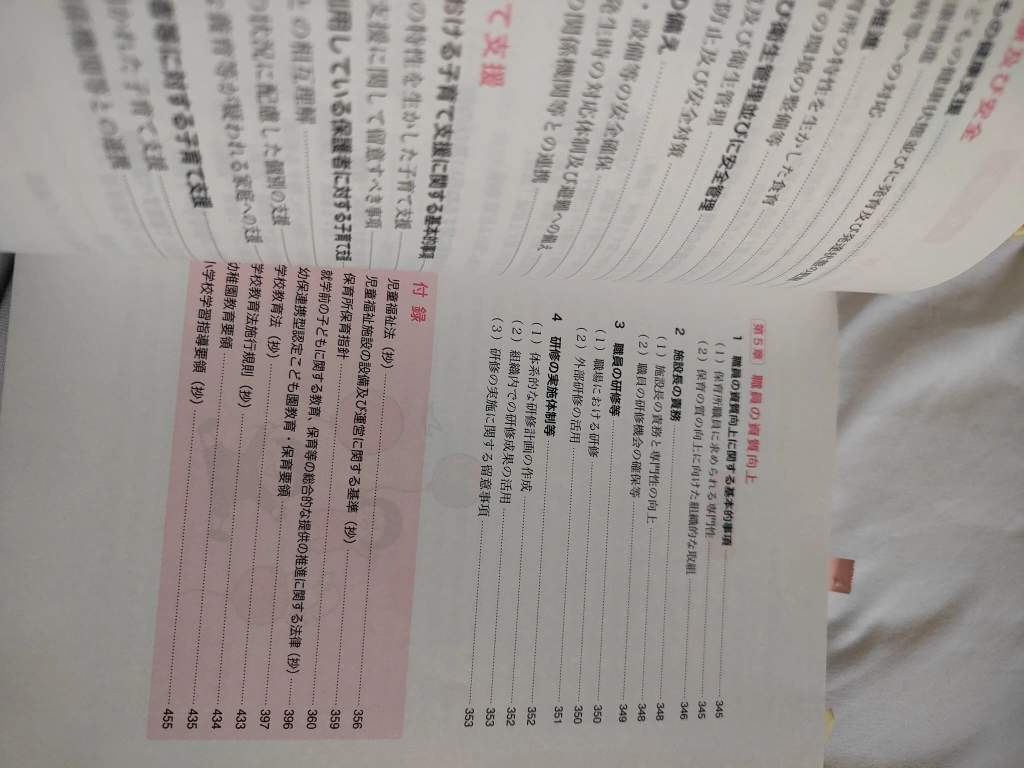 及び安全
もの健康支援
どもの健康状態並びに発育及び発達状態の把握
健康増進
病等への対応
の推進
育所の特性を生かした食育
育の環境の整備等
及び衛生管理並びに安全管理
境及び衛生管理
防止及び安全対策
の備え
・設備等の安全確保
発生時の対応体制及び避難への備え
の関係機関等との連携
て支援
おける子育て支援に関する基本的事項
の特性を生かした子育て支援
支援に関して留意すべき事項
利用している保護者に対する子育て支援
との相互理解
の状況に配慮した個別の支援
な養育等が疑われる家庭への支援
者等に対する子育て支援
かれた子育て支援
関係機関等との連携
第5章 職員の資質向上
1 職員の資質向上に関する基本的事項 345
(1) 保育所職員に求められる専門性 345
(2) 保育の質の向上に向けた組織的な取組 346
2 施設長の責務 348
(1) 施設長の責務と専門性の向上 348
(2) 職員の研修機会の確保等 349
3 職員の研修等 350
(1) 職場における研修 350
(2) 外部研修の活用 351
4 研修の実施体制等 352
(1) 体系的な研修計画の作成 352
(2) 組織内での研修成果の活用 353
(3) 研修の実施に関する留意事項 353
付録
児童福祉法(抄) 356
児童福祉施設の設備及び運営に関する基準(抄) 359
保育所保育指針 360
就学前の子どもに関する教育、保育等の総合的な提供の推進に関する法律(抄) 396
幼保連携型認定こども園教育・保育要領 397
学校教育法(抄) 433
学校教育法施行規則(抄) 434
幼稚園教育要領 435
小学校学習指導要領(抄) 455